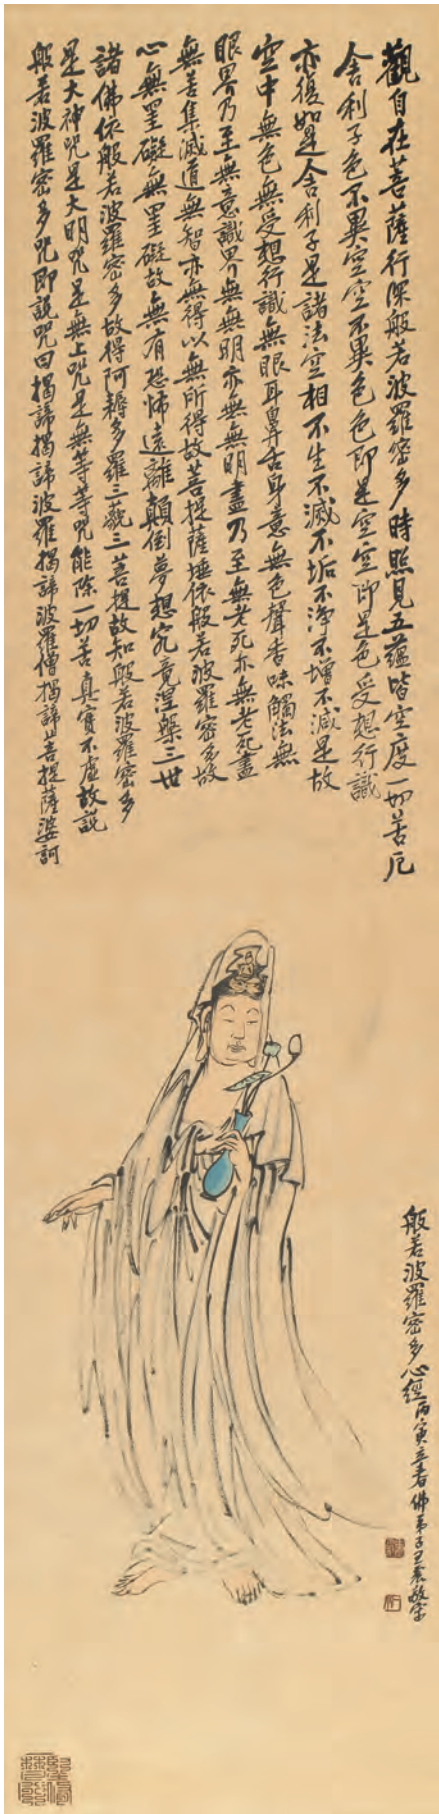 觀自在菩薩行深般若波羅密多時照見五蘊皆空度一切苦厄
舍利子色不異空空不異色色即是空空即是色受想行識
亦復如是舍利子是諸法空相不生不滅不垢不淨不增不減是故
空中無色無受想行識無眼耳鼻舌身意無色聲香味觸法無
眼界乃至無意識界無無明亦無無明盡乃至無老死亦無老死盡
無苦集滅道無智亦無得以無所得故菩提薩埵依般若波羅密多故
心無罣礙無罣礙故無有恐怖遠離顛倒夢想究竟涅槃三世
諸佛依般若波羅密多故得阿耨多羅三藐三菩提故知般若波羅密多
是大神咒是大明咒是無上咒是無等等咒能除一切苦真實不虛故說
般若波羅密多咒即說咒曰揭諦揭諦波羅揭諦波羅僧揭諦菩提薩婆訶
般若波羅密多心經丙寅立春佛弟子王震敬寫